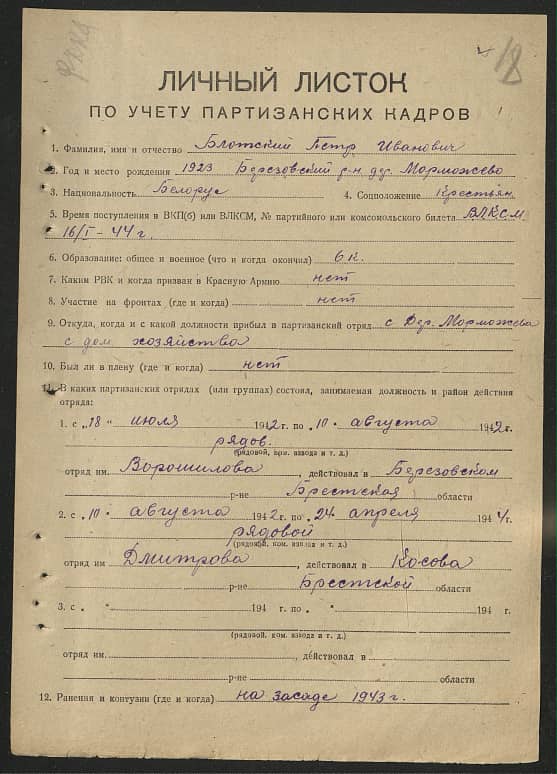 18
ЛИЧНЫЙ ЛИСТОК
ПО УЧЕТУ ПАРТИЗАНСКИХ КАДРОВ
1. Фамилия, имя и отчество Блотский Петр Иванович
2. Год и место рождения 1923 Березовский р-н дер. Морможево
3. Национальность Белорус 4. Соцположение Крестьян.
5. Время поступления в ВКП(б) или ВЛКСМ, № партийного или комсомольского билета ВЛКСМ
16/I-44 г.
6. Образование: общее и военное (что и когда окончил) 6 к.
7. Каким РВК и когда призван в Красную Армию нет
8. Участие на фронтах (где и когда) нет
9. Откуда, когда и с какой должности прибыл в партизанский отряд с Дер. Морможева
с дом. хозяйства
10. Был ли в плену (где и когда) нет
11. В каких партизанских отрядах (или группах) состоял, занимаемая должность и район действия
отряда:
1. с „18" июля 1942 г. по „10. августа 1942 г.
рядов.
(рядовой, ком. взвода и т. д.)
отряд им. Ворошилова, действовал в Березовском
р-не Брестская области
2. с „10. августа 1942 г. по „24 апреля 1944 г.
рядовой
(рядовой, ком. взвода и т. д.)
отряд им Дмитрова, действовал в Косова
р-не Брестской области
3. с „ " 194 г. по „ " 194 г.
(рядовой, ком. взвода и т. д.)
отряд им., действовал в
р-не области
12. Ранения и контузии (где и когда) на засаде 1943 г.